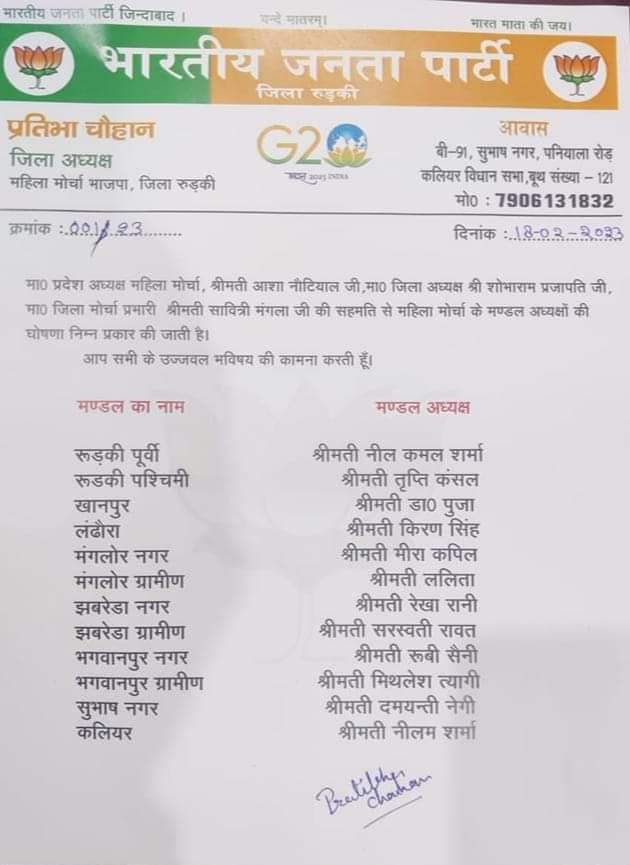 भारतीय जनता पार्टी जिन्दाबाद ।
वन्दे मातरम्।
भारत माता की जय।
भारतीय जनता पार्टी
जिला रुड़की
प्रतिभा चौहान
जिला अध्यक्ष
महिला मोर्चा भाजपा, जिला रुड़की
G20
भारत 2023 INDIA
आवास
बी-91, सुभाष नगर, पनियाला रोड़
कलियर विधान सभा,बूथ संख्या – 121
मो0 : 7906131832
क्रमांक :.001/23........
दिनांक :.18-02-2023
मा0 प्रदेश अध्यक्ष महिला मोर्चा, श्रीमती आशा नौटियाल जी,मा0 जिला अध्यक्ष श्री शोभाराम प्रजापति जी,
मा0 जिला मोर्चा प्रभारी श्रीमती सावित्री मंगला जी की सहमति से महिला मोर्चा के मण्डल अध्यक्षों की
घोषणा निम्न प्रकार की जाती है।
आप सभी के उज्जवल भविषय की कामना करती हूँ।
मण्डल का नाम मण्डल अध्यक्ष
रूड़की पूर्वी श्रीमती नील कमल शर्मा
रूडकी पश्चिमी श्रीमती तृप्ति कंसल
खानपुर श्रीमती डा0 पुजा
लंढौरा श्रीमती किरण सिंह
मंगलोर नगर श्रीमती मीरा कपिल
मंगलोर ग्रामीण श्रीमती ललिता
झबरेडा नगर श्रीमती रेखा रानी
झबरेडा ग्रामीण श्रीमती सरस्वती रावत
भगवानपुर नगर श्रीमती रूबी सैनी
भगवानपुर ग्रामीण श्रीमती मिथलेश त्यागी
सुभाष नगर श्रीमती दमयन्ती नेगी
कलियर श्रीमती नीलम शर्मा
Pratibha
Chauhan